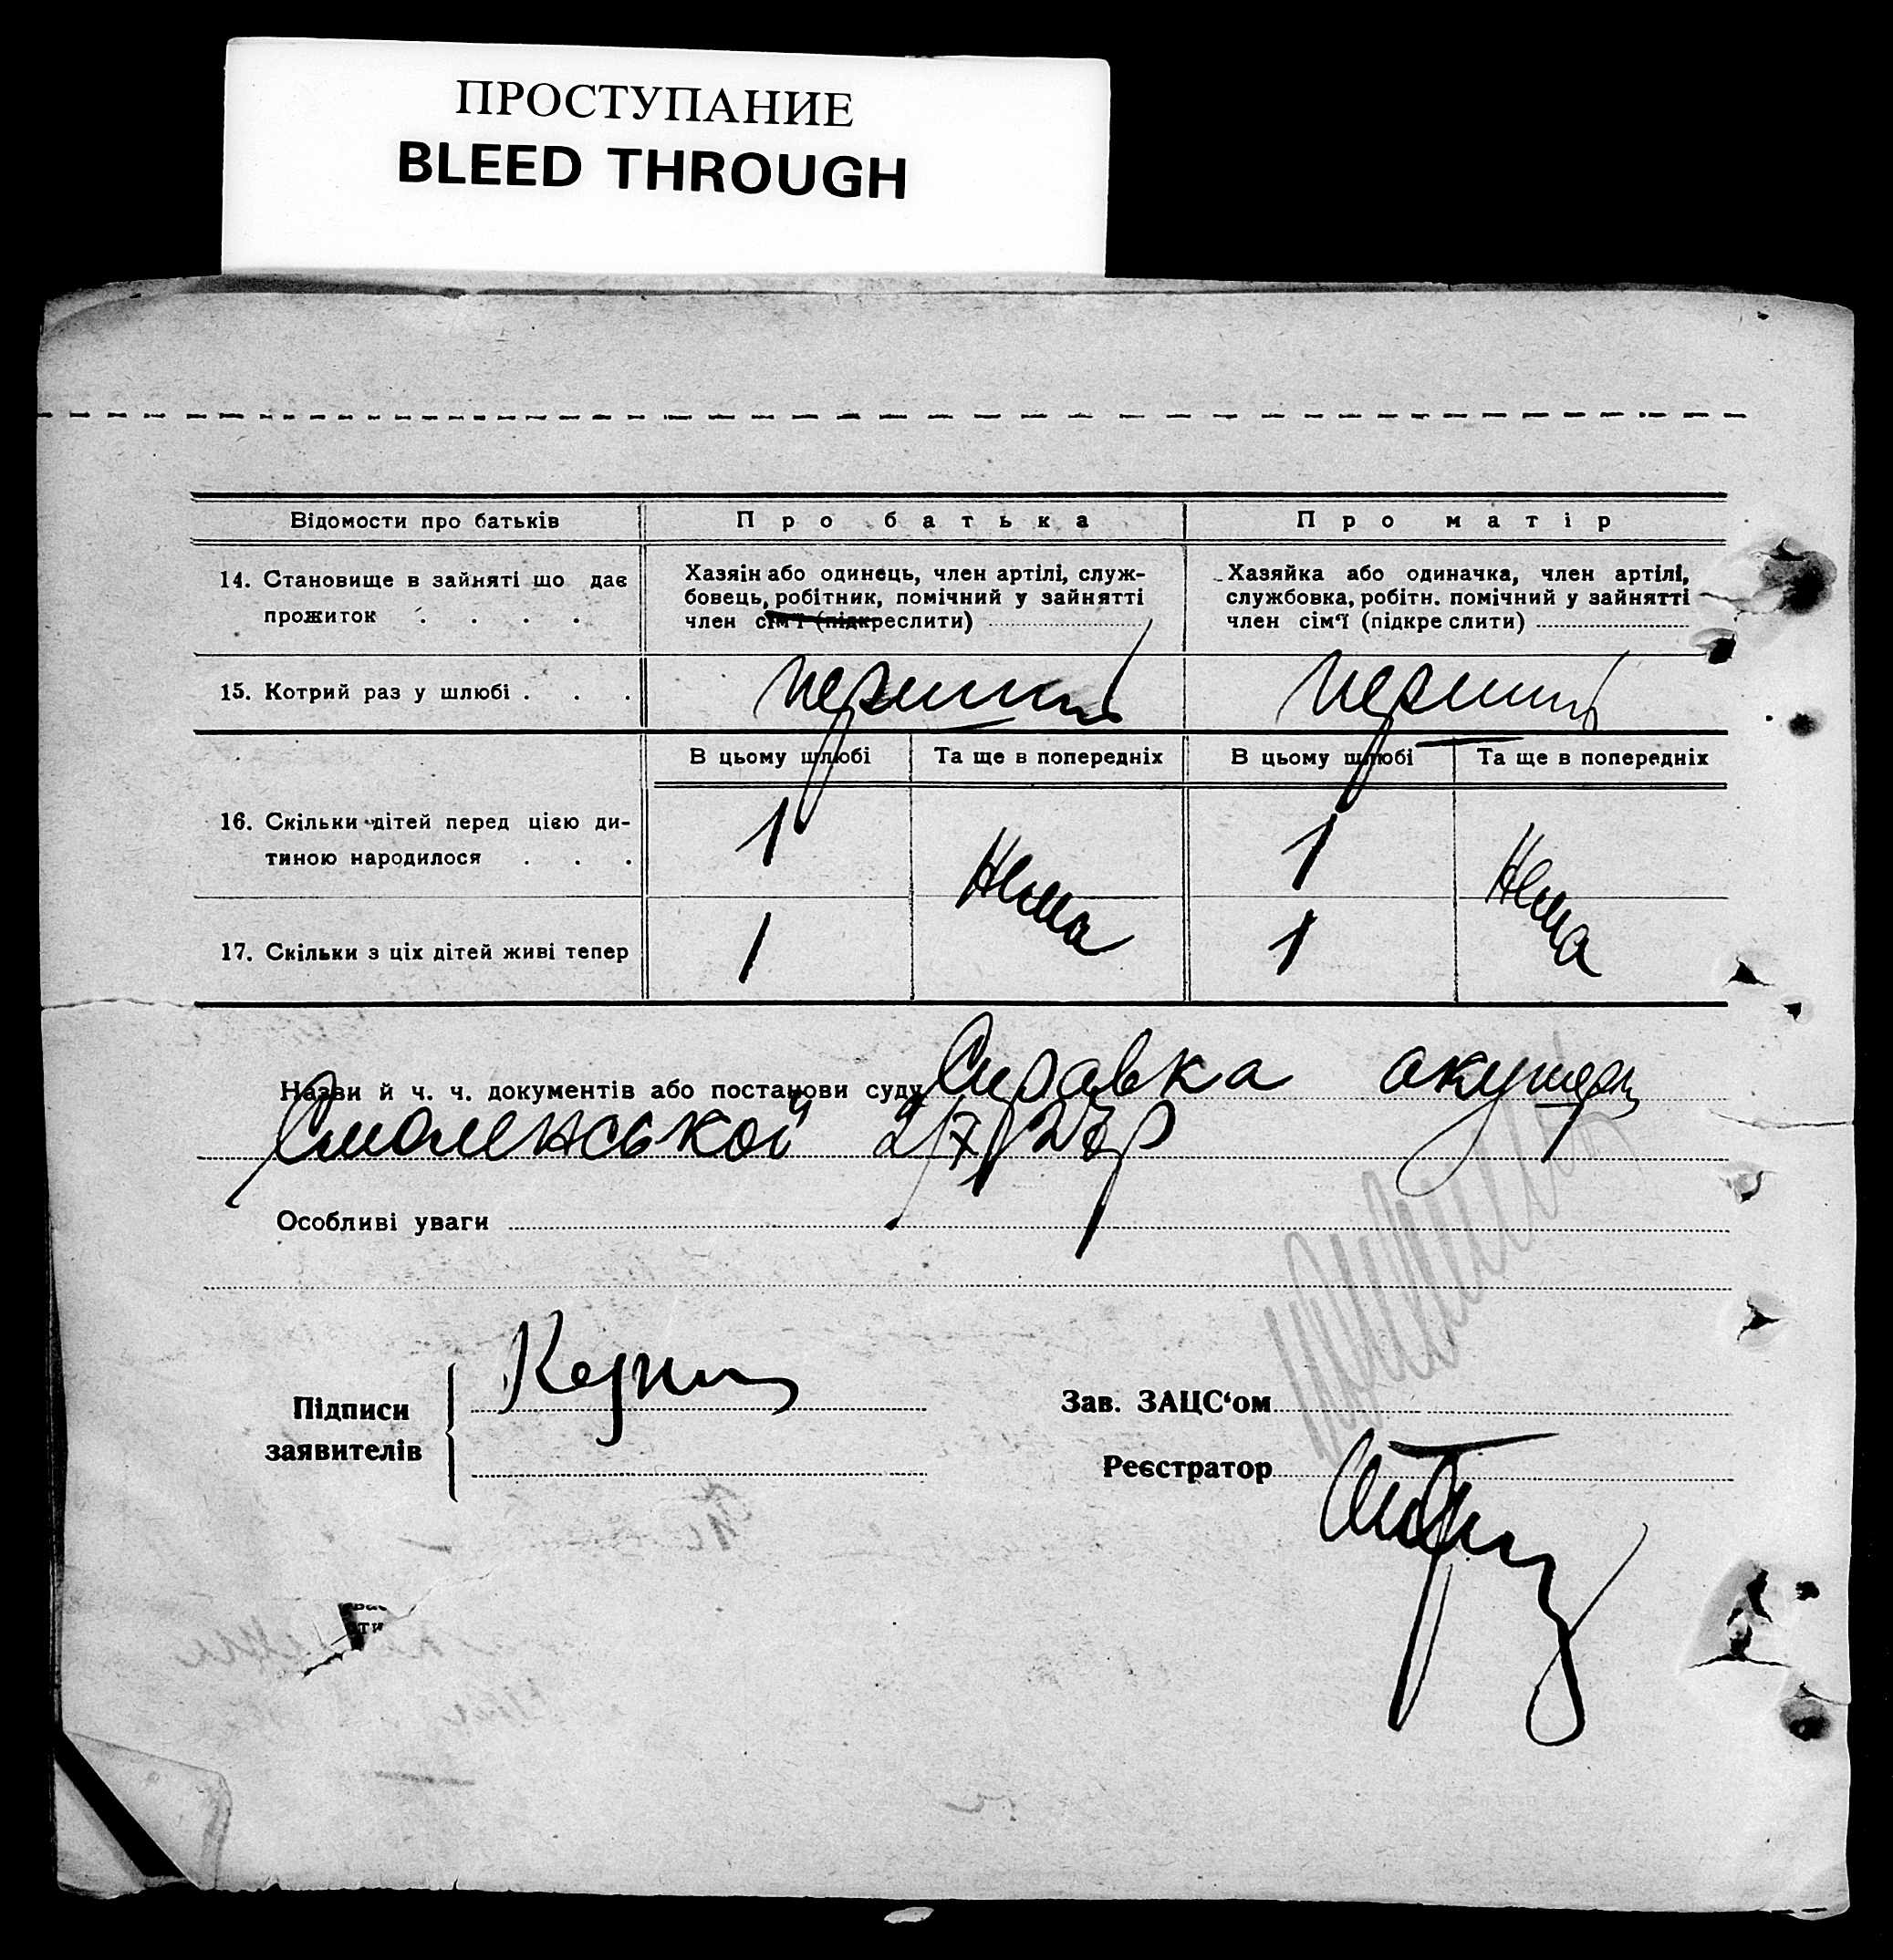 ПРОСТУПАНИЕ
BLEED THROUGH
Відомости про батьків
Про батька
Про матір
14. Становище в зайняті що дає
прожиток . . . .
Хазяін або одинець, член артілі, служ-
бовець, робітник, помічний у зайнятті
член сім'ї (підкреслити)
Хазяйка або одиначка, член артілі,
службовка, робітн. помічний у зайнятті
член сім'ї (підкре слити)
15. Котрий раз у шлюбі . . .
перший
перший
В цьому шлюбі
Та ще в попередніх
В цьому шлюбі
Та ще в попередніх
16. Скільки дітей перед цією ди-
тиною народилося . . .
1
Нема
1
Нема
17. Скільки з ціх дітей живі тепер
1
1
Назви й ч. ч. документів або постанови суду Справка акушерк
Смоленської
Особливі уваги
Підписи
заявителів
Зав. ЗАЦС'ом
Реєстратор